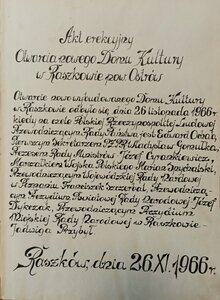 Akt erekcyjny
Otwarcia nowego Domu Kultury
w Raszkowie pow. Ostrów
Otwarcie nowo wybudowanego Domu Kultury
w Raszkowie odbyło się dnia 26 listopada 1966 r.
kiedy na czele Polskiej Rzeczypospolitej Ludowej
Przewodniczącym Rady Państwa jest Edward Ochab,
Pierwszym Sekretarzem PZPR Władysław Gomułka,
Prezesem Rady Ministrów Józef Cyrankiewicz,
Marszałkiem Wojska Polskiego Marian Spychalski,
Przewodniczącym Wojewódzkiej Rady Narodowej
w Poznaniu Franciszek Szczerbal, Przewodniczą-
cym Prezydium Powiatowej Rady Narodowej Józef
Dykczak, Przewodniczącym Prezydium
Miejskiej Rady Narodowej w Raszkowie -
Jadwiga Przybył.
Raszków, dnia 26.XI.1966 r.